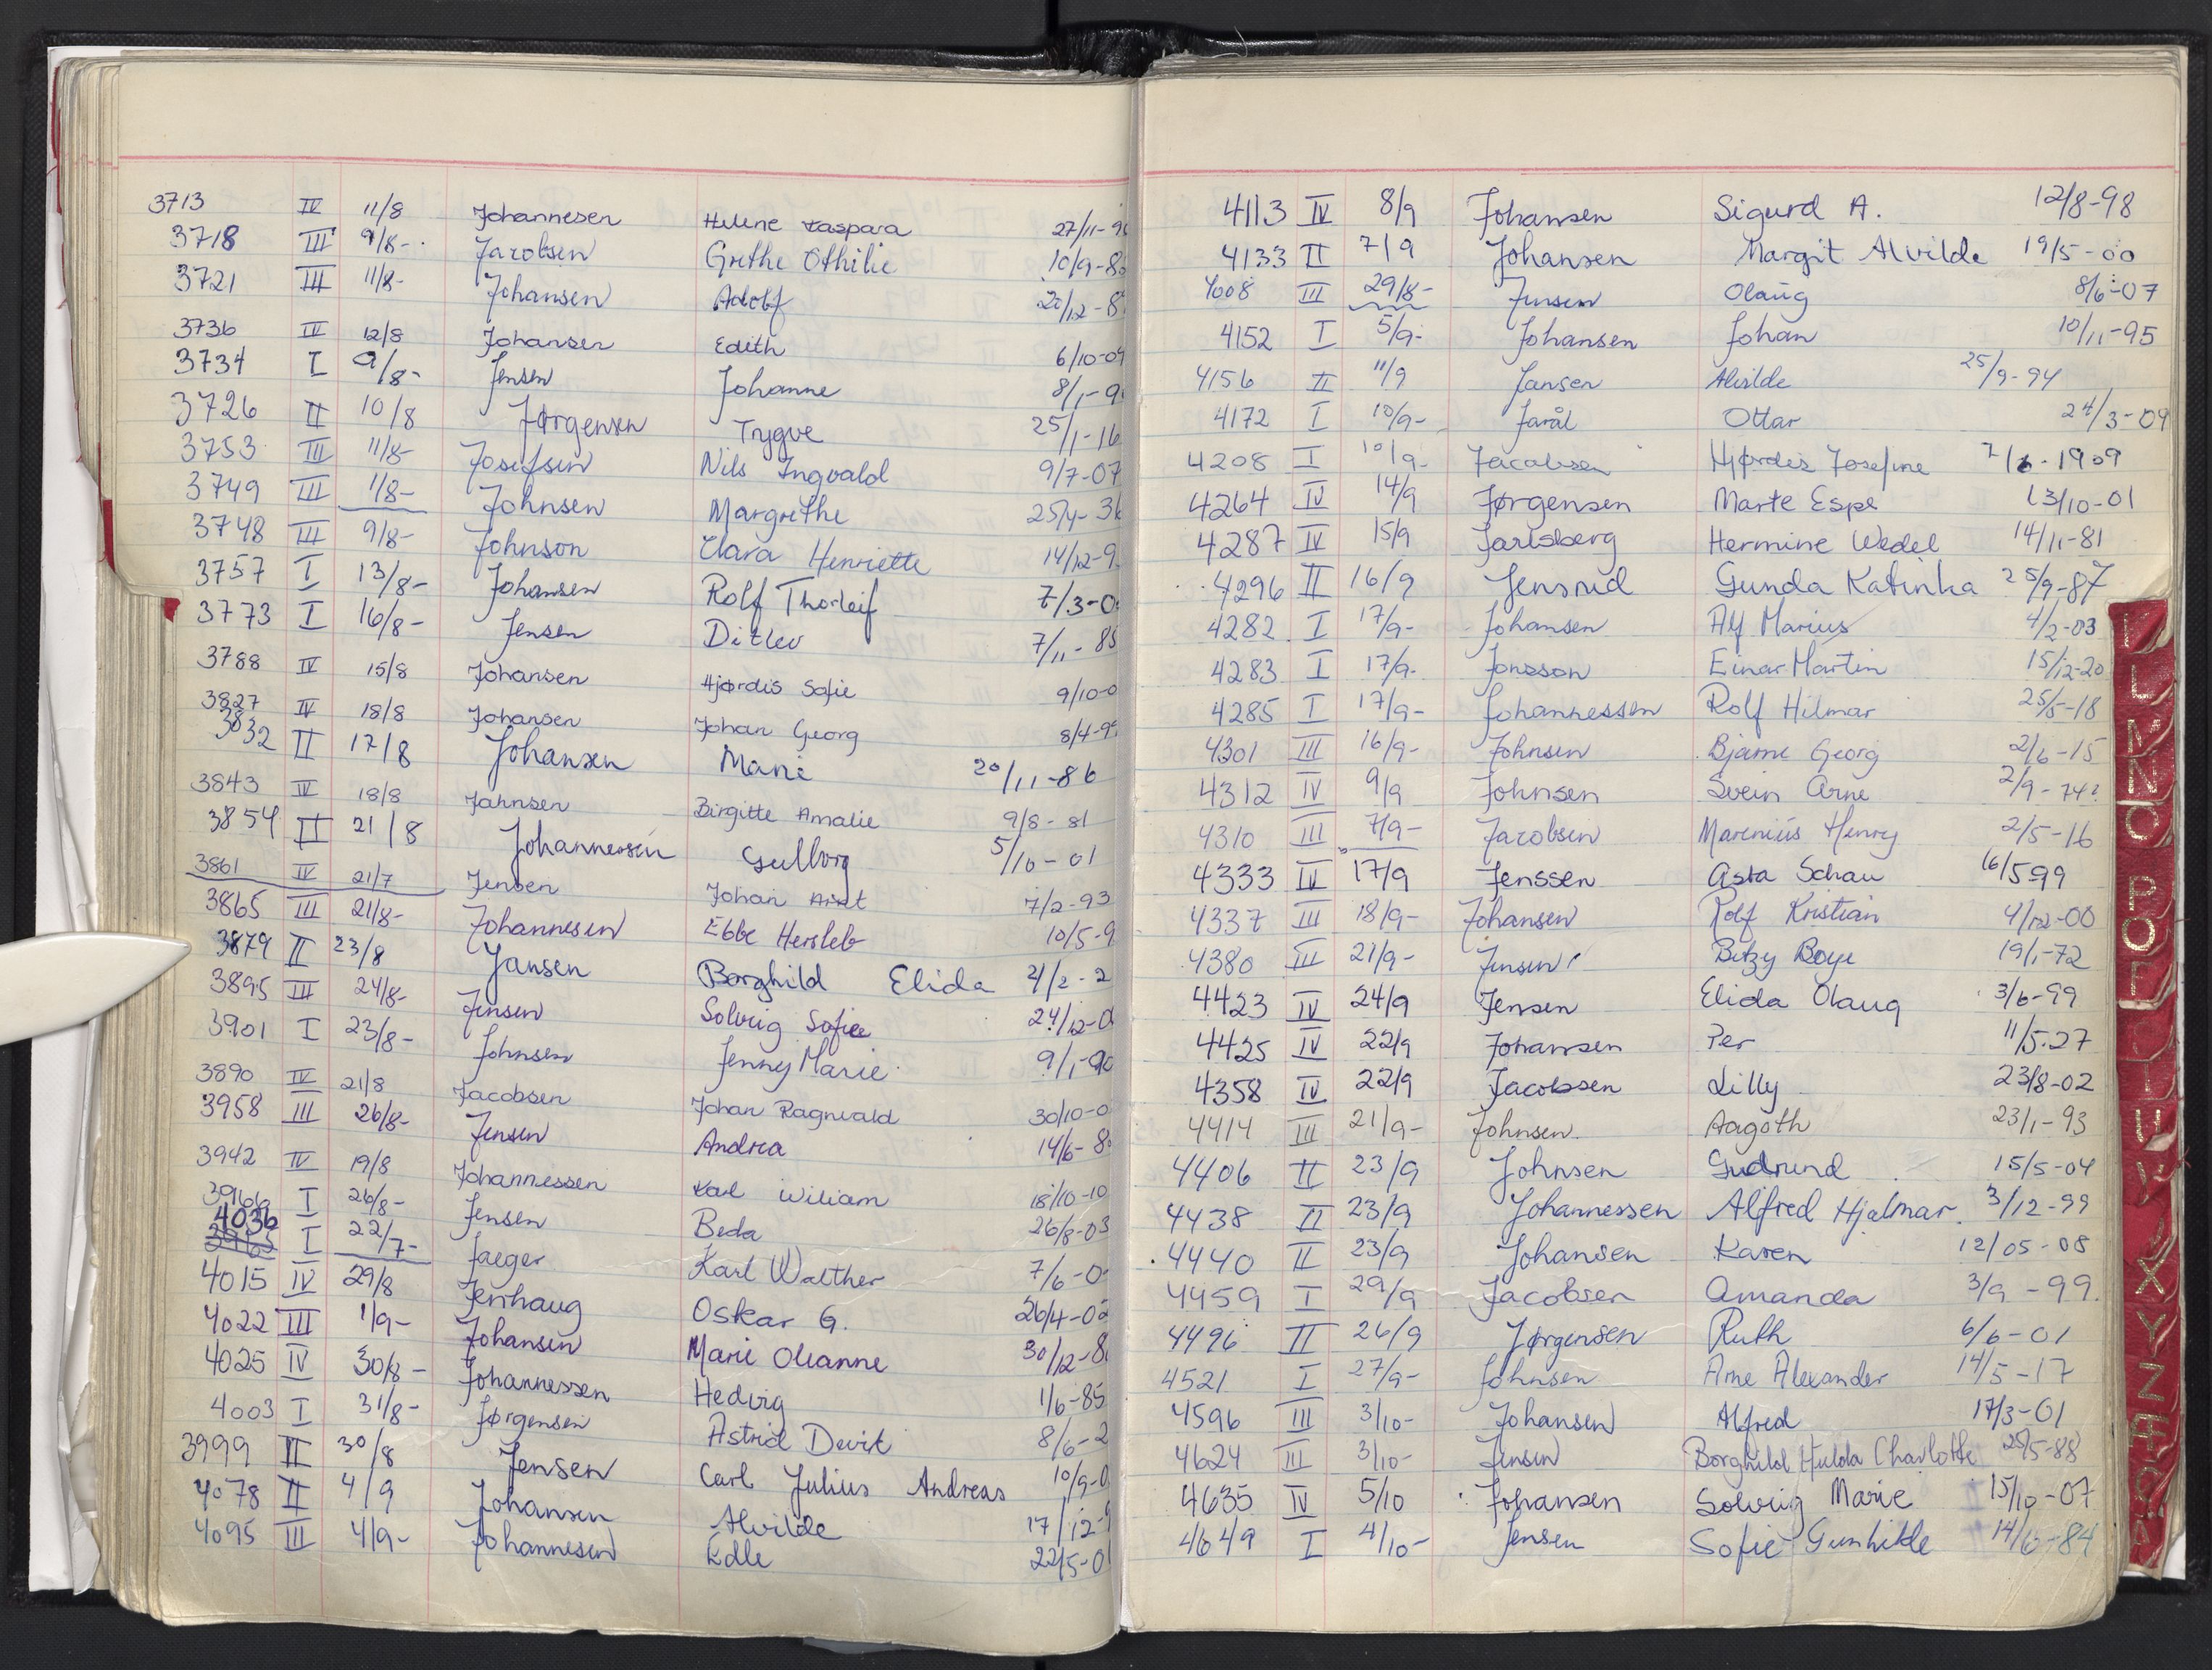 3713 IV 11/8 Johannesen Helene Kaspara 27/11-9
3718 III 9/8- Jacobsen Grethe Othilie 10/9-8
3721 III 11/8- Johansen Adolf 20/12-8
3736 IV 12/8 Johansen Edith 6/10-09
3734 I 9/8- Jensen Johanne 8/1-9
3726 II 10/8 Jørgensen Trygve 25/1-16
3753 III 11/8- Josefsen Nils Ingvald 9/7-07
3749 III 1/8- Johnsen Margrethe 25/4-36
3748 III 9/8- Johnson Clara Henriette 14/12-9
3757 I 13/8- Johansen Rolf Thorleif 7/3-0
3773 I 16/8- Jensen Ditlev 7/11-85
3788 IV 15/8 Johansen Hjørdis Sofie 9/10-0
3827 IV 18/8 Johansen Johan Georg 8/4-99
3832 II 17/8 Johansen Marie 20/11-86
3843 IV 18/8 Jahnsen Birgitte Amalie 9/8-81
3854 II 21/8 Johannessen Gullborg 5/10-01
3861 IV 21/7 Jensen Johan Arnt 7/2-93
3865 III 21/8- Johannesen Ebbe Hersleb 10/5-9
3879 II 23/8 Jansen Borghild Elida 4/2-2
3895 III 24/8- Jensen Solveig Sofie 24/12-0
3901 I 23/8- Johnsen Jenny Marie 9/1-90
3890 IV 21/8 Jacobsen Johan Ragnvald 30/10-0
3958 III 26/8- Jensen Andrea 14/6-8
3942 IV 19/8 Johannessen Karl Wiliam 18/10-10
3966 I 26/8- Jensen Beda 26/8-03
4036 I 22/7- Jaeger Karl Walther 7/6-0
4015 IV 29/8 Jenhaug Oskar G. 26/4-02
4022 III 1/9- Johansen Marie Oleanne 30/12-8
4025 IV 30/8- Johannessen Hedvig 1/6-85
4003 I 31/8- Jørgensen Astrid Devit 8/6-2
3999 II 30/8 Jensen Carl Julius Andreas 10/9-0
4078 II 4/9 Johansen Alvilde 17/12-
4095 III 4/9- Johannesen Edle 22/5-0
4113 IV 8/9 Johansen Sigurd A. 12/8-98
4133 II 7/9 Johansen Margit Alvilde 19/5-00
4008 III 29/8- Jensen Olaug 8/6-07
4152 I 5/9- Johansen Johan 10/11-95
4156 II 11/9 Jansen Alvilde 25/9-94
4172 I 10/9- Jarål Ottar 24/3-09
4208 I 10/9- Jacobsen Hjørdis Josefine 7/6-1909
4264 IV 14/9 Jørgensen Marte Espe 13/10-01
4287 IV 15/9 Jarlsberg Hermine Wedel 14/11-81
4296 II 16/9 Jensrud Gunda Katinka 25/9-87
4282 I 17/9- Johansen Alf Marius 4/2-03
4283 I 17/9- Jonsson Einar Martin 15/12-20
4285 I 17/9- Johannessen Rolf Hilmar 25/5-18
4301 III 16/9- Johnsen Bjarne Georg 2/6-15
4312 IV 9/9 Johnsen Svein Arne 2/9-74!
4310 III 7/9- Jacobsen Marenius Henry 2/5-16
4333 IV 17/9 Jenssen Asta Schau 16/5 99
4337 III 18/9- Johansen Rolf Kristian 4/12-00
4380 III 21/9- Jensen Betzy Boye 19/1-72
4423 IV 24/9 Jensen Elida Olaug 3/6-99
4425 IV 22/9 Johansen Per 11/5-27
4358 IV 22/9 Jacobsen Lilly 23/8-02
4414 III 21/9- Johnsen Aagoth 23/1-93
4406 II 23/9 Johnsen Gudrund 15/5-04
4438 II 23/9 Johannessen Alfred Hjalmar 3/12-99
4440 II 23/9 Johansen Karen 12/05-08
4459 I 29/9 Jacobsen Amanda 3/9-99
4496 II 26/9 Jørgensen Ruth 6/6-01
4521 I 27/9- Johnsen Arne Alexander 14/5-17
4596 III 3/10- Johansen Alfred 17/3-01
4624 III 3/10- Jensen Borghild Hulda Charlotte 25/5-88
4635 IV 5/10 Johansen Solveig Marie 15/10-07
4649 I 4/10- Jensen Sofie Gunhilde 14/6-84